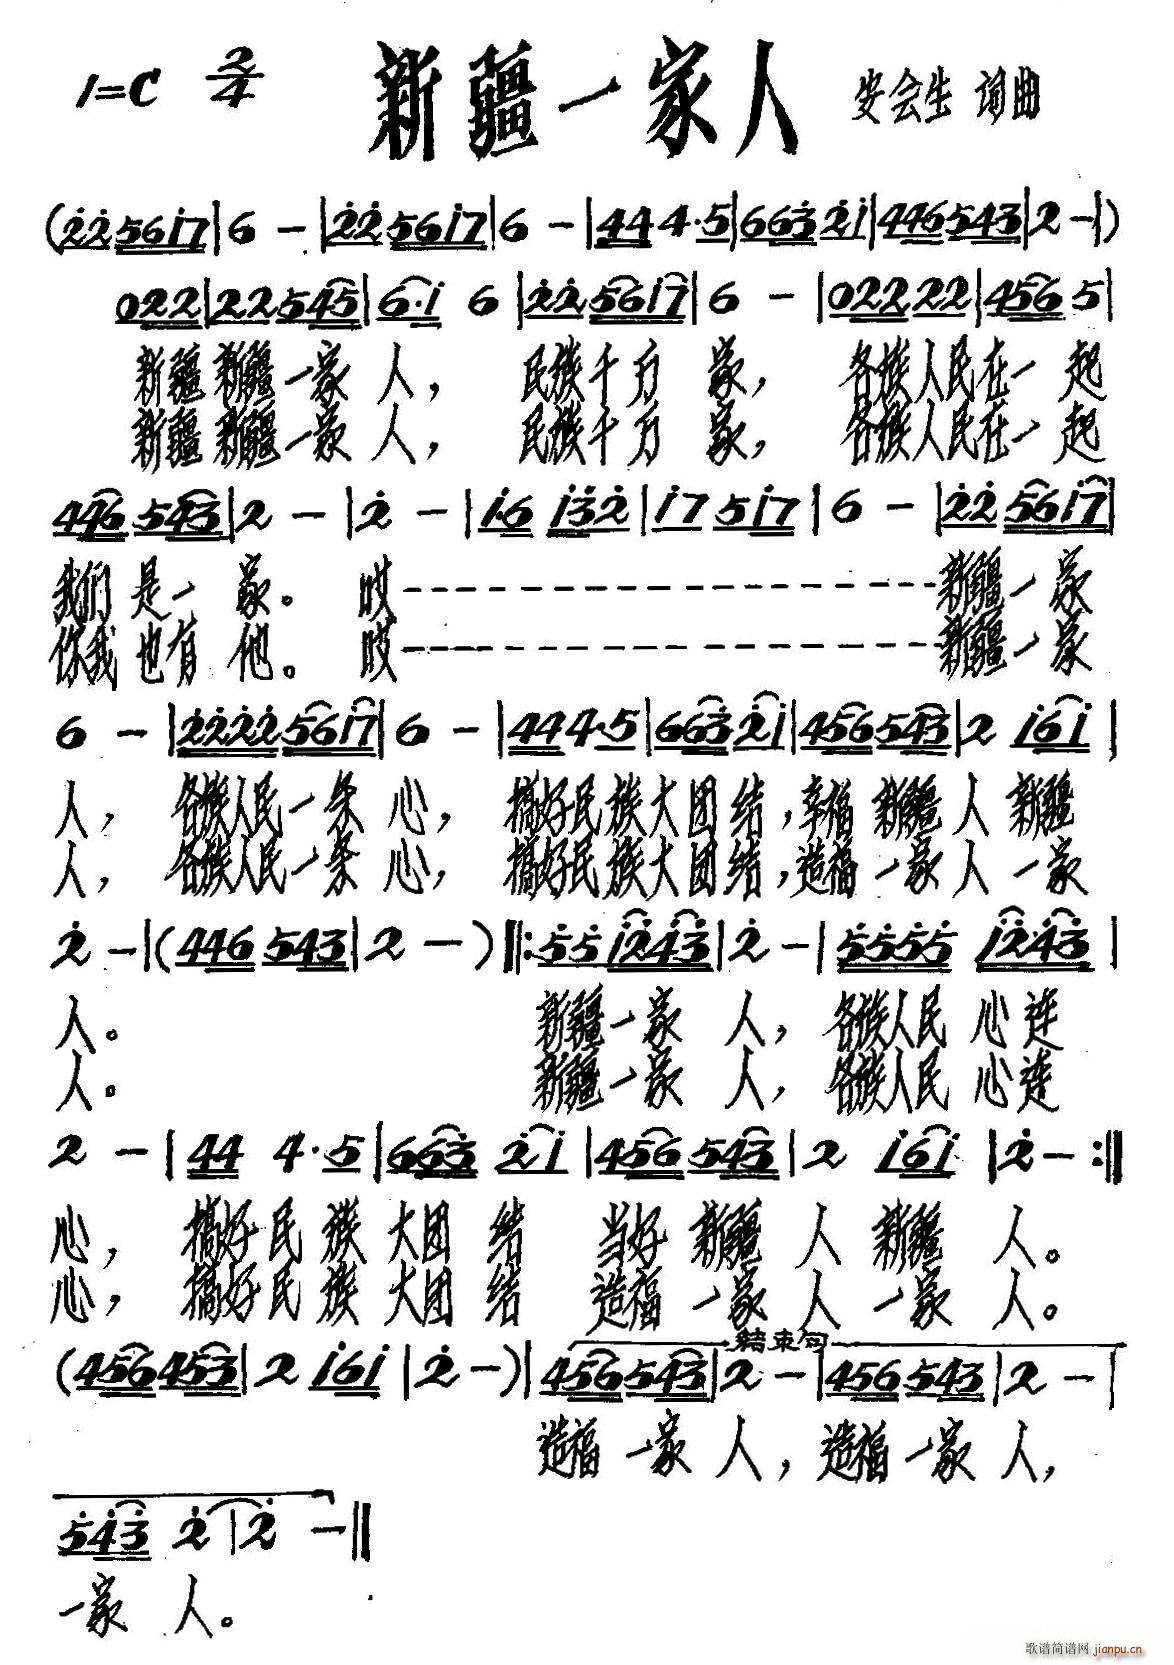 1=C 2/4 新疆一家人 安会生 词曲
(2̇2̇561̇7|6 -|2̇2̇561̇7|6 -|444·5|6632̇1̇|446543|2 -|)
022|22545|6·1̇ 6|2̇2̇561̇7|6 -|02222|456 5|
新疆 新疆一家 人， 民族千万 家， 各族人民在一 起
新疆 新疆一家 人， 民族千万 家， 各族人民在一 起
446 543|2 -|2̇ -|1̇·6 1̇3̇2̇|1̇7 51̇7|6 -|2̇2̇561̇7|
我们 是一 家。 哎------------------新疆一家
你我 也有 他。 哎------------------新疆一家
6 -|2̇2̇2̇2̇561̇7|6 -|444·5|6632̇1̇|456543|2 1̇61̇|
人， 各族人民一条 心， 搞好民族大团结，幸福 新疆 人 新疆
人， 各族人民一条 心， 搞好民族大团结，造福 一家 人 一家
2̇ -|(446 543|2 -)‖:5̇5̇1̇2̇4̇3̇|2̇ -|5̇5̇5̇5̇ 1̇2̇·4̇3̇|
人。 新疆一家 人， 各族人民 心连
人。 新疆一家 人， 各族人民 心连
2 -|44 4·5|663 2̇1̇|456543|2 1̇61̇|2̇ -:‖
心， 搞好民族大团 结 当好 新疆 人 新疆 人。
心， 搞好民族大团 结 造福 一家 人 一家 人。
结束句
(456453|2 1̇61̇|2̇ -)|456543|2 -|456543|2 -|
造福 一家 人，造福 一家 人，
5̇4̇3̇ 2̇|2̇ -‖
一家 人。
歌谱简谱网 jianpu.cn